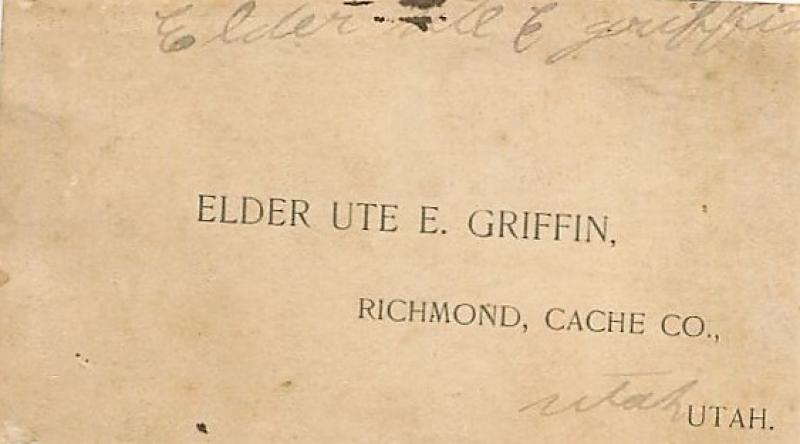 Elder Ute E griffin
ELDER UTE E. GRIFFIN,
RICHMOND, CACHE CO.,
utah UTAH.